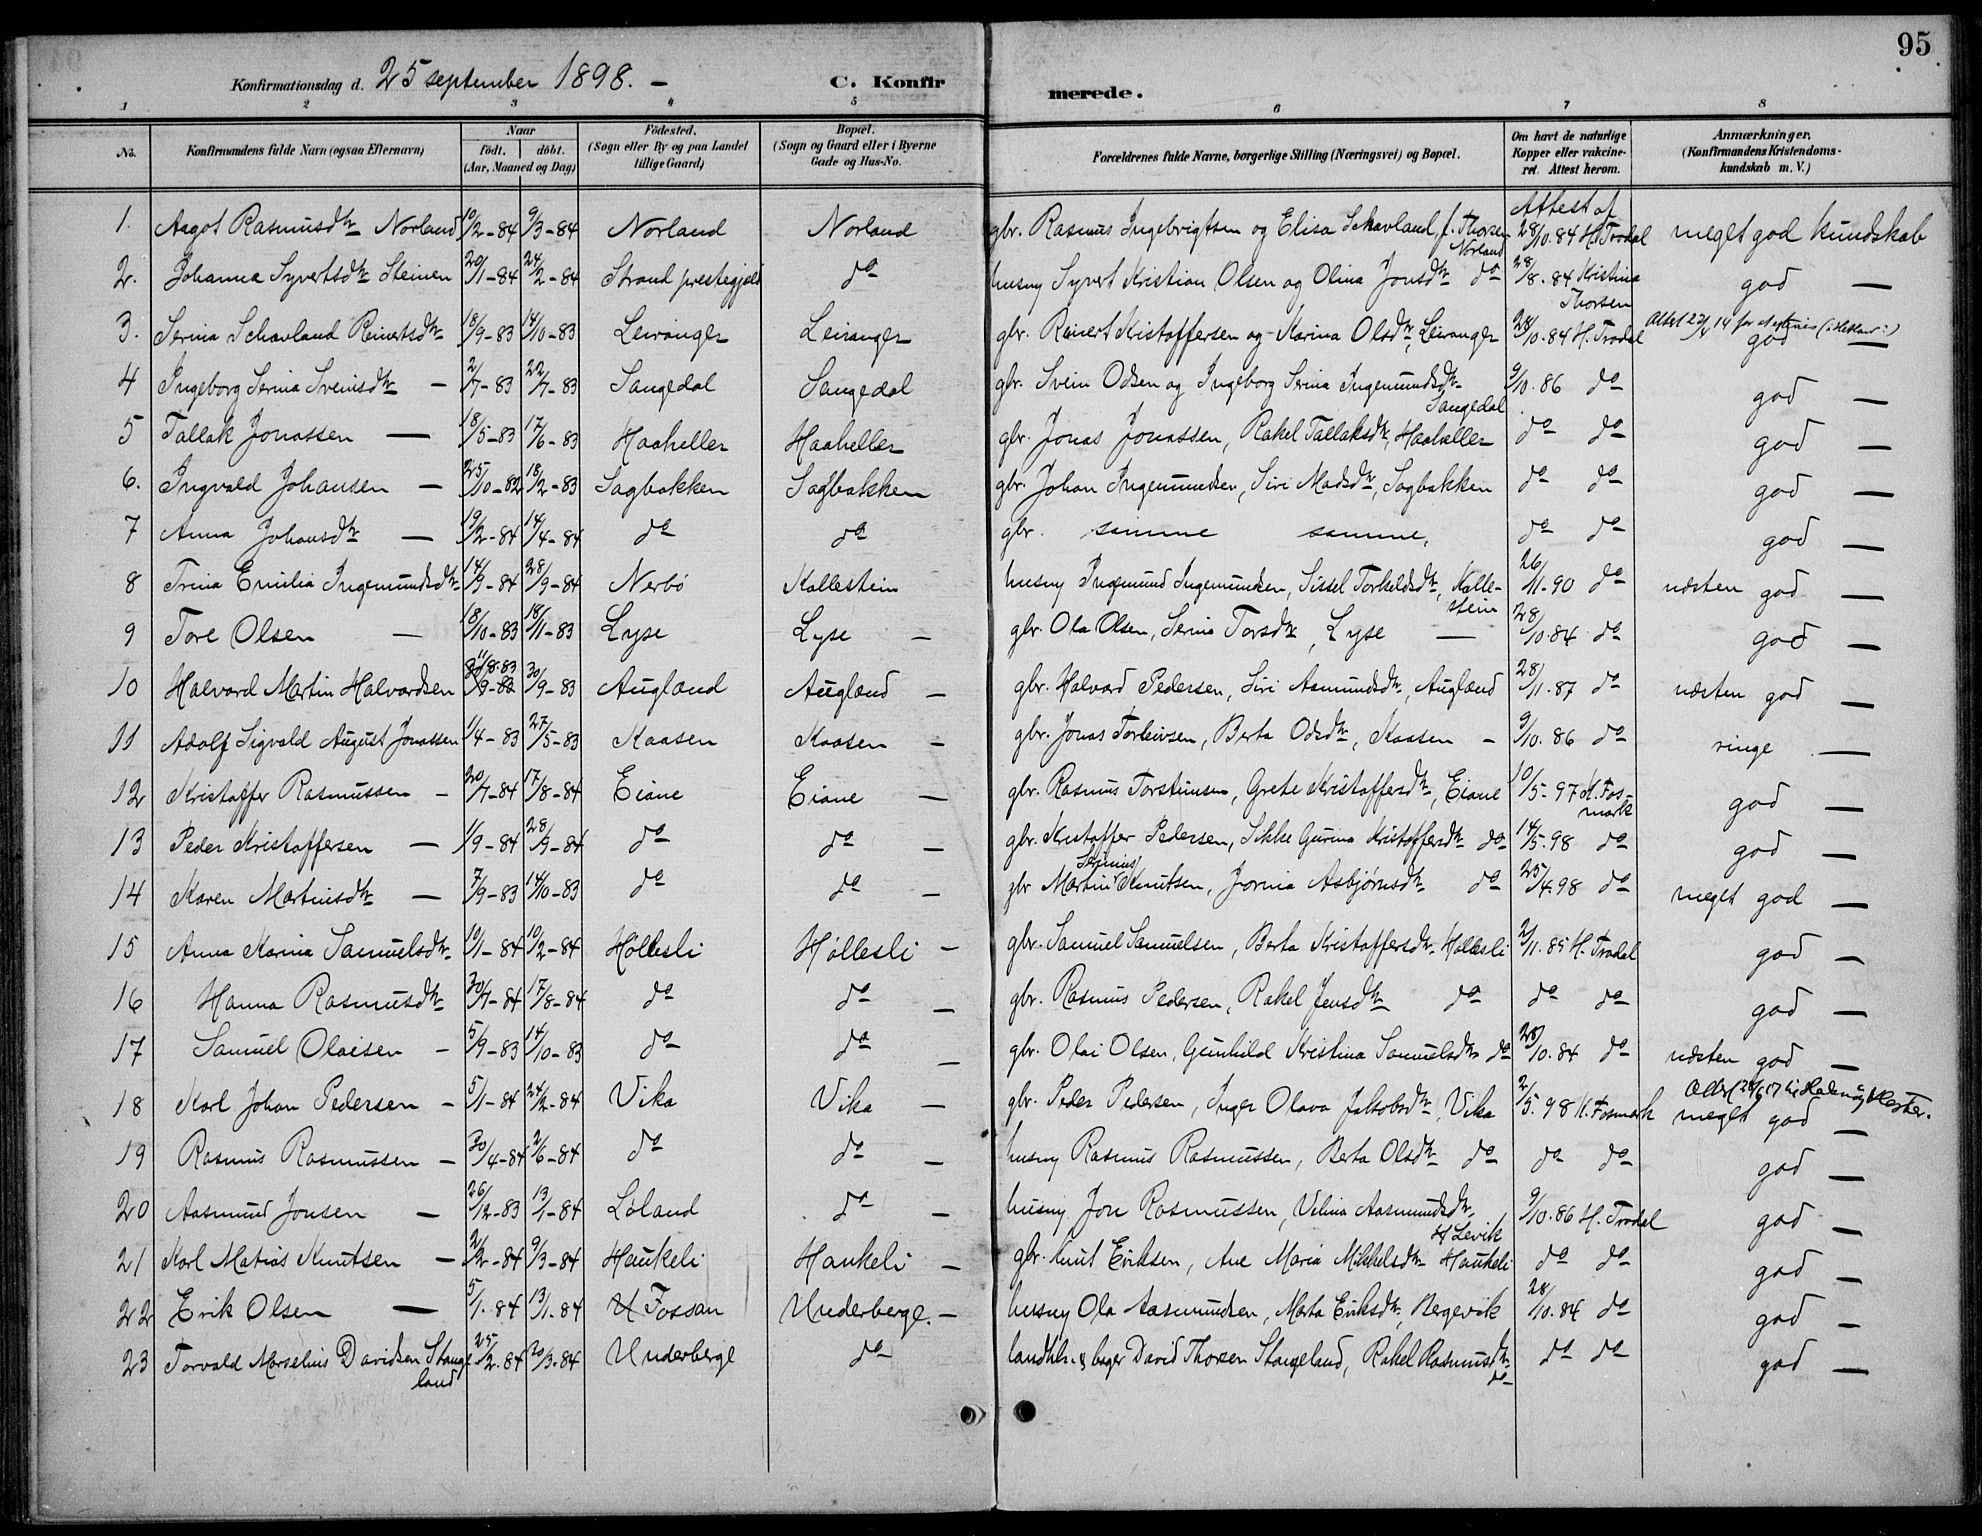 95
Konfirmationsdag d. 25 september 1898. — C. Konfirmerede.
1 2 3 4 5 6 7 8
No. Konfirmandens fulde Navn (ogsaa Efternavn) Naar födt. döbt. (Aar, Maaned og Dag) Födested. (Sogn eller By og paa Landet tillige Gaard) Bopæl. (Sogn og Gaard eller i Byerne Gade og Hus-No. Forældrenes fulde Navne, borgerlige Stilling (Næringsvei) og Bopæl. Om havt de naturlige Kopper eller vakcineret. Attest herom. Anmærkninger, (Konfirmandens Kristendomskundskab m. V.)
1. Aagot Rasmusdtr Norland 10/2-84 9/3-84 Norland Norland gbr. Rasmus Ingebrigtsen og Elisa Schavland f. Thorsen Norland Attest af 28/10.84 H. Trodal meget god kundskab
2. Johanna Syvertsdtr Steinen 20/1-84 24/2-84 Strand prestegjeld do husmy Syvert Kristian Olsen og Olina Jonsdtr do 28/8.84 Kristina Thorsen god —
3. Serina Schavland Reinertsdtr 18/9-83 14/10-83 Leiranger Leiranger gbr. Reinert Kristoffersen og Karina Olsdtr, Leiranger 28/10.84 H. Trodal god —
4 Ingeborg Serina Sveinsdtr — 2/7-83 22/7-83 Sangedal Sangedal gbr. Svein Odsen og Ingeborg Serina Ingemundsdtr Sangedal 9/10.86 do god —
5 Tallak Jonassen — 18/5-83 17/6-83 Haaheller Haaheller gbr. Jonas Jonassen, Rakel Tallaksdtr, Haaheller do do god —
6. Ingvald Johansen — 25/10-82 18/2-83 Sagbakken Sagbakken gbr. Johan Ingemundsen, Siri Madsdtr, Sagbakken do do god —
7 Anna Johansdtr — 19/2-84 14/4-84 do do gbr. samme samme, do do god —
8 Trina Emilia Ingemundsdtr 14/9-84 28/9-84 Nerbö Kallestein husmy Ingemund Ingemundsen, Sissel Torkeldsdtr, Kallestein 26/11-90 do næsten god —
9 Tore Olsen — 18/10-83 18/11-83 Lyse Lyse — gbr. Ola Olsen, Serina Torsdtr, Lyse — 28/10.84 do god —
10 Halvard Martin Halvardsen 11/8.83 30/9-83 Augland Augland — gbr. Halvard Pedersen, Siri Asmundsdtr, Augland 28/11.87 do næsten god —
11 Adolf Sigvald August Jonassen 1/4-83 27/5-83 Kaasen Kaasen — gbr. Jonas Torleivsen, Berta Odsdtr, Kaasen — 9/10.86 do ringe —
12 Kristoffer Rasmussen — 20/7-84 17/8-84 Eiane Eiane — gbr. Rasmus Torsteinsen, Grete Kristoffersdtr, Eiane 10/5-97 K. Fosmark god —
13 Peder Kristoffersen — 1/9-84 28/9-84 do do — gbr. Kristoffer Pedersen, Sikke Gurina Kristoffersdtr do 14/5.98 do god —
14 Karen Martinsdtr — 7/9-83 14/10-83 do do — gbr Martin Serinius Knutsen, Jorina Asbjørnsdtr do 25/4.98 do meget god —
15 Anna Karina Samuelsdtr 10/1-84 10/2-84 Höllesli Höllesli — gbr. Samuel Samuelsen, Berta Kristoffersdtr Höllesli 2/11.85 H. Trodal god —
16 Hanna Rasmusdtr 30/7-84 17/8-84 do do — gbr. Rasmus Pedersen, Rakel Jensdtr do do do god —
17 Samuel Olaisen — 5/9-83 14/10-83 do do — gbr. Olai Olsen, Gunhild Kristina Samuelsdtr do 28/10.84 do næsten god —
18 Karl Johan Pedersen — 5/1-84 24/2-84 Vika Vika — gbr. Peder Pedersen, Inger Olava Jakobsdtr, Vika 2/5.98 K. Fosmark meget god —
19 Rasmus Rasmussen — 30/4-84 2/6-84 do do — husmy Rasmus Rasmussen, Berta Olsdtr do do do god —
20 Aasmund Jonsen — 26/12-83 13/1-84 Löland do — husmy Jon Rasmussen, Velina Aasmundsdtr, H Levik 9/10.86 H. Trodal god —
21 Karl Matias Knutsen — 2/2-84 9/3-84 Haukeli Haukeli — gbr. Knut Eriksen, Ane Maria Mikkelsdtr Haukeli do do god —
22 Erik Olsen — 5/1.84 13/1.84 U Fossan Underberge. — husmy Ola Aasmundsen, Marta Eriksdtr, Bergevik 28/10.84 do god —
23 Torvald Marselius Davidsen Stangeland 25/2.84 20/3.84 Underberge do landh. & bager David Thorsen Stangeland, Rakel Rasmusdtr do do do god —